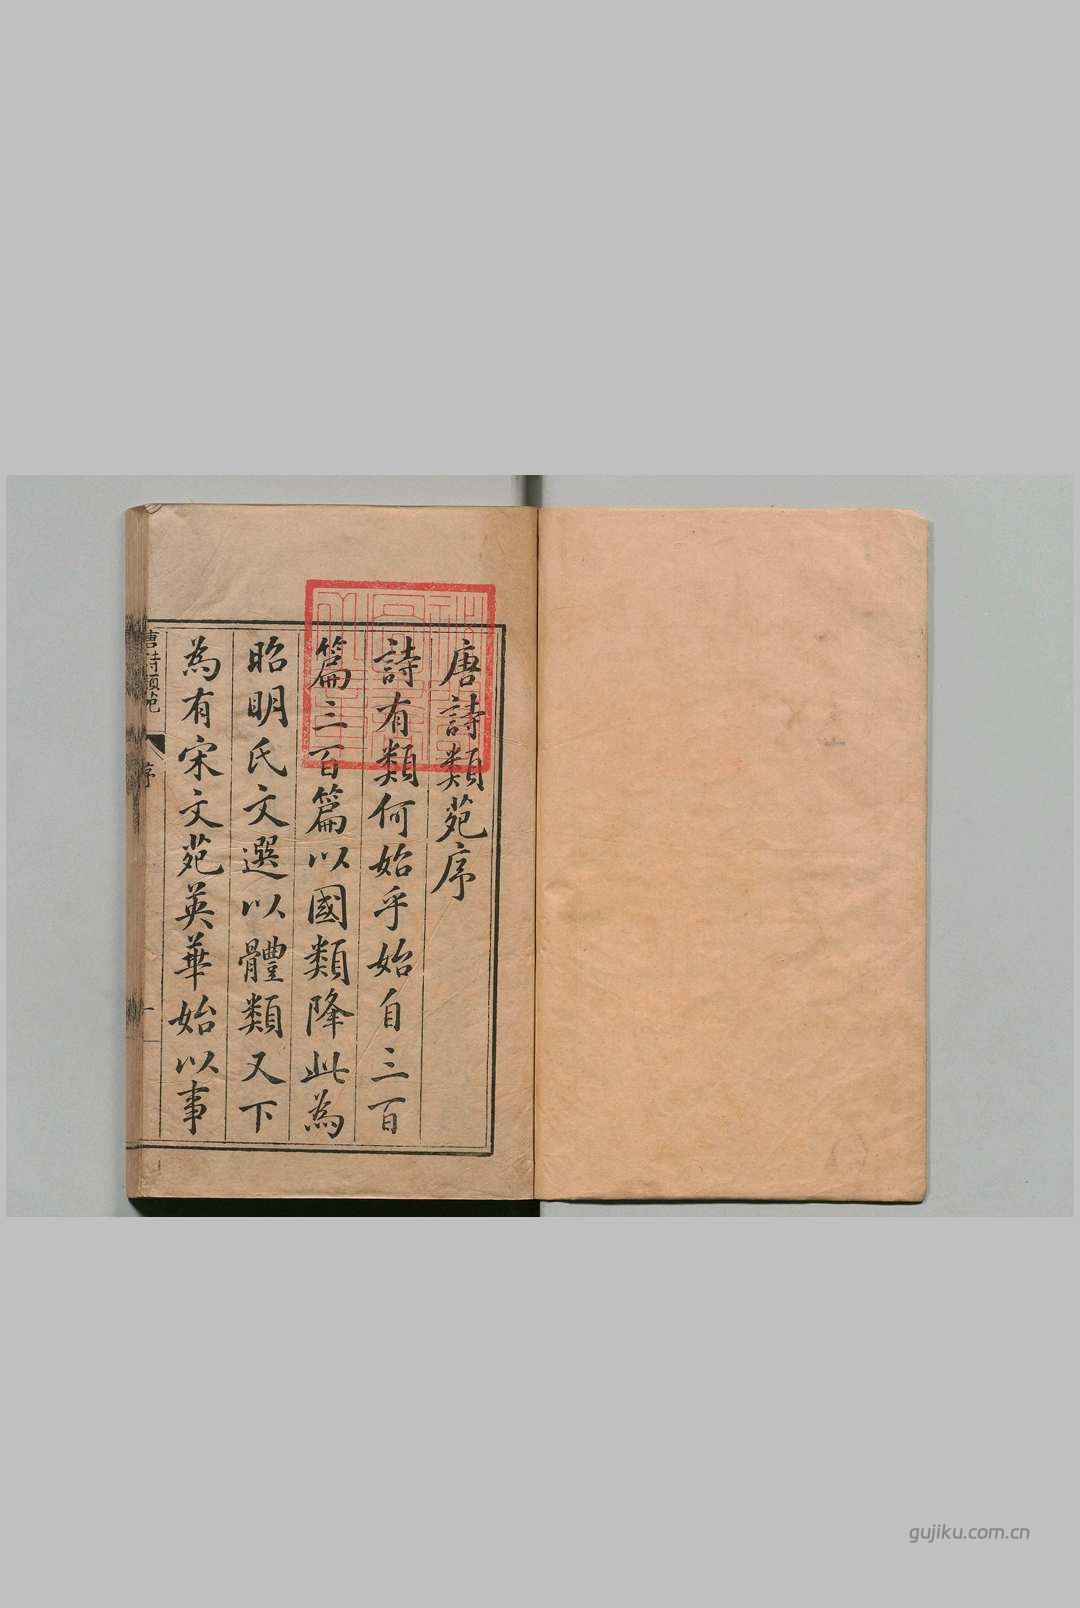 唐詩類苑序
詩有類何始乎始自三百
篇三百篇以國類降此為
昭明氏文選以體類又下
為有宋文苑英華始以事
唐詩類苑
序
一
gujiku.com.cn